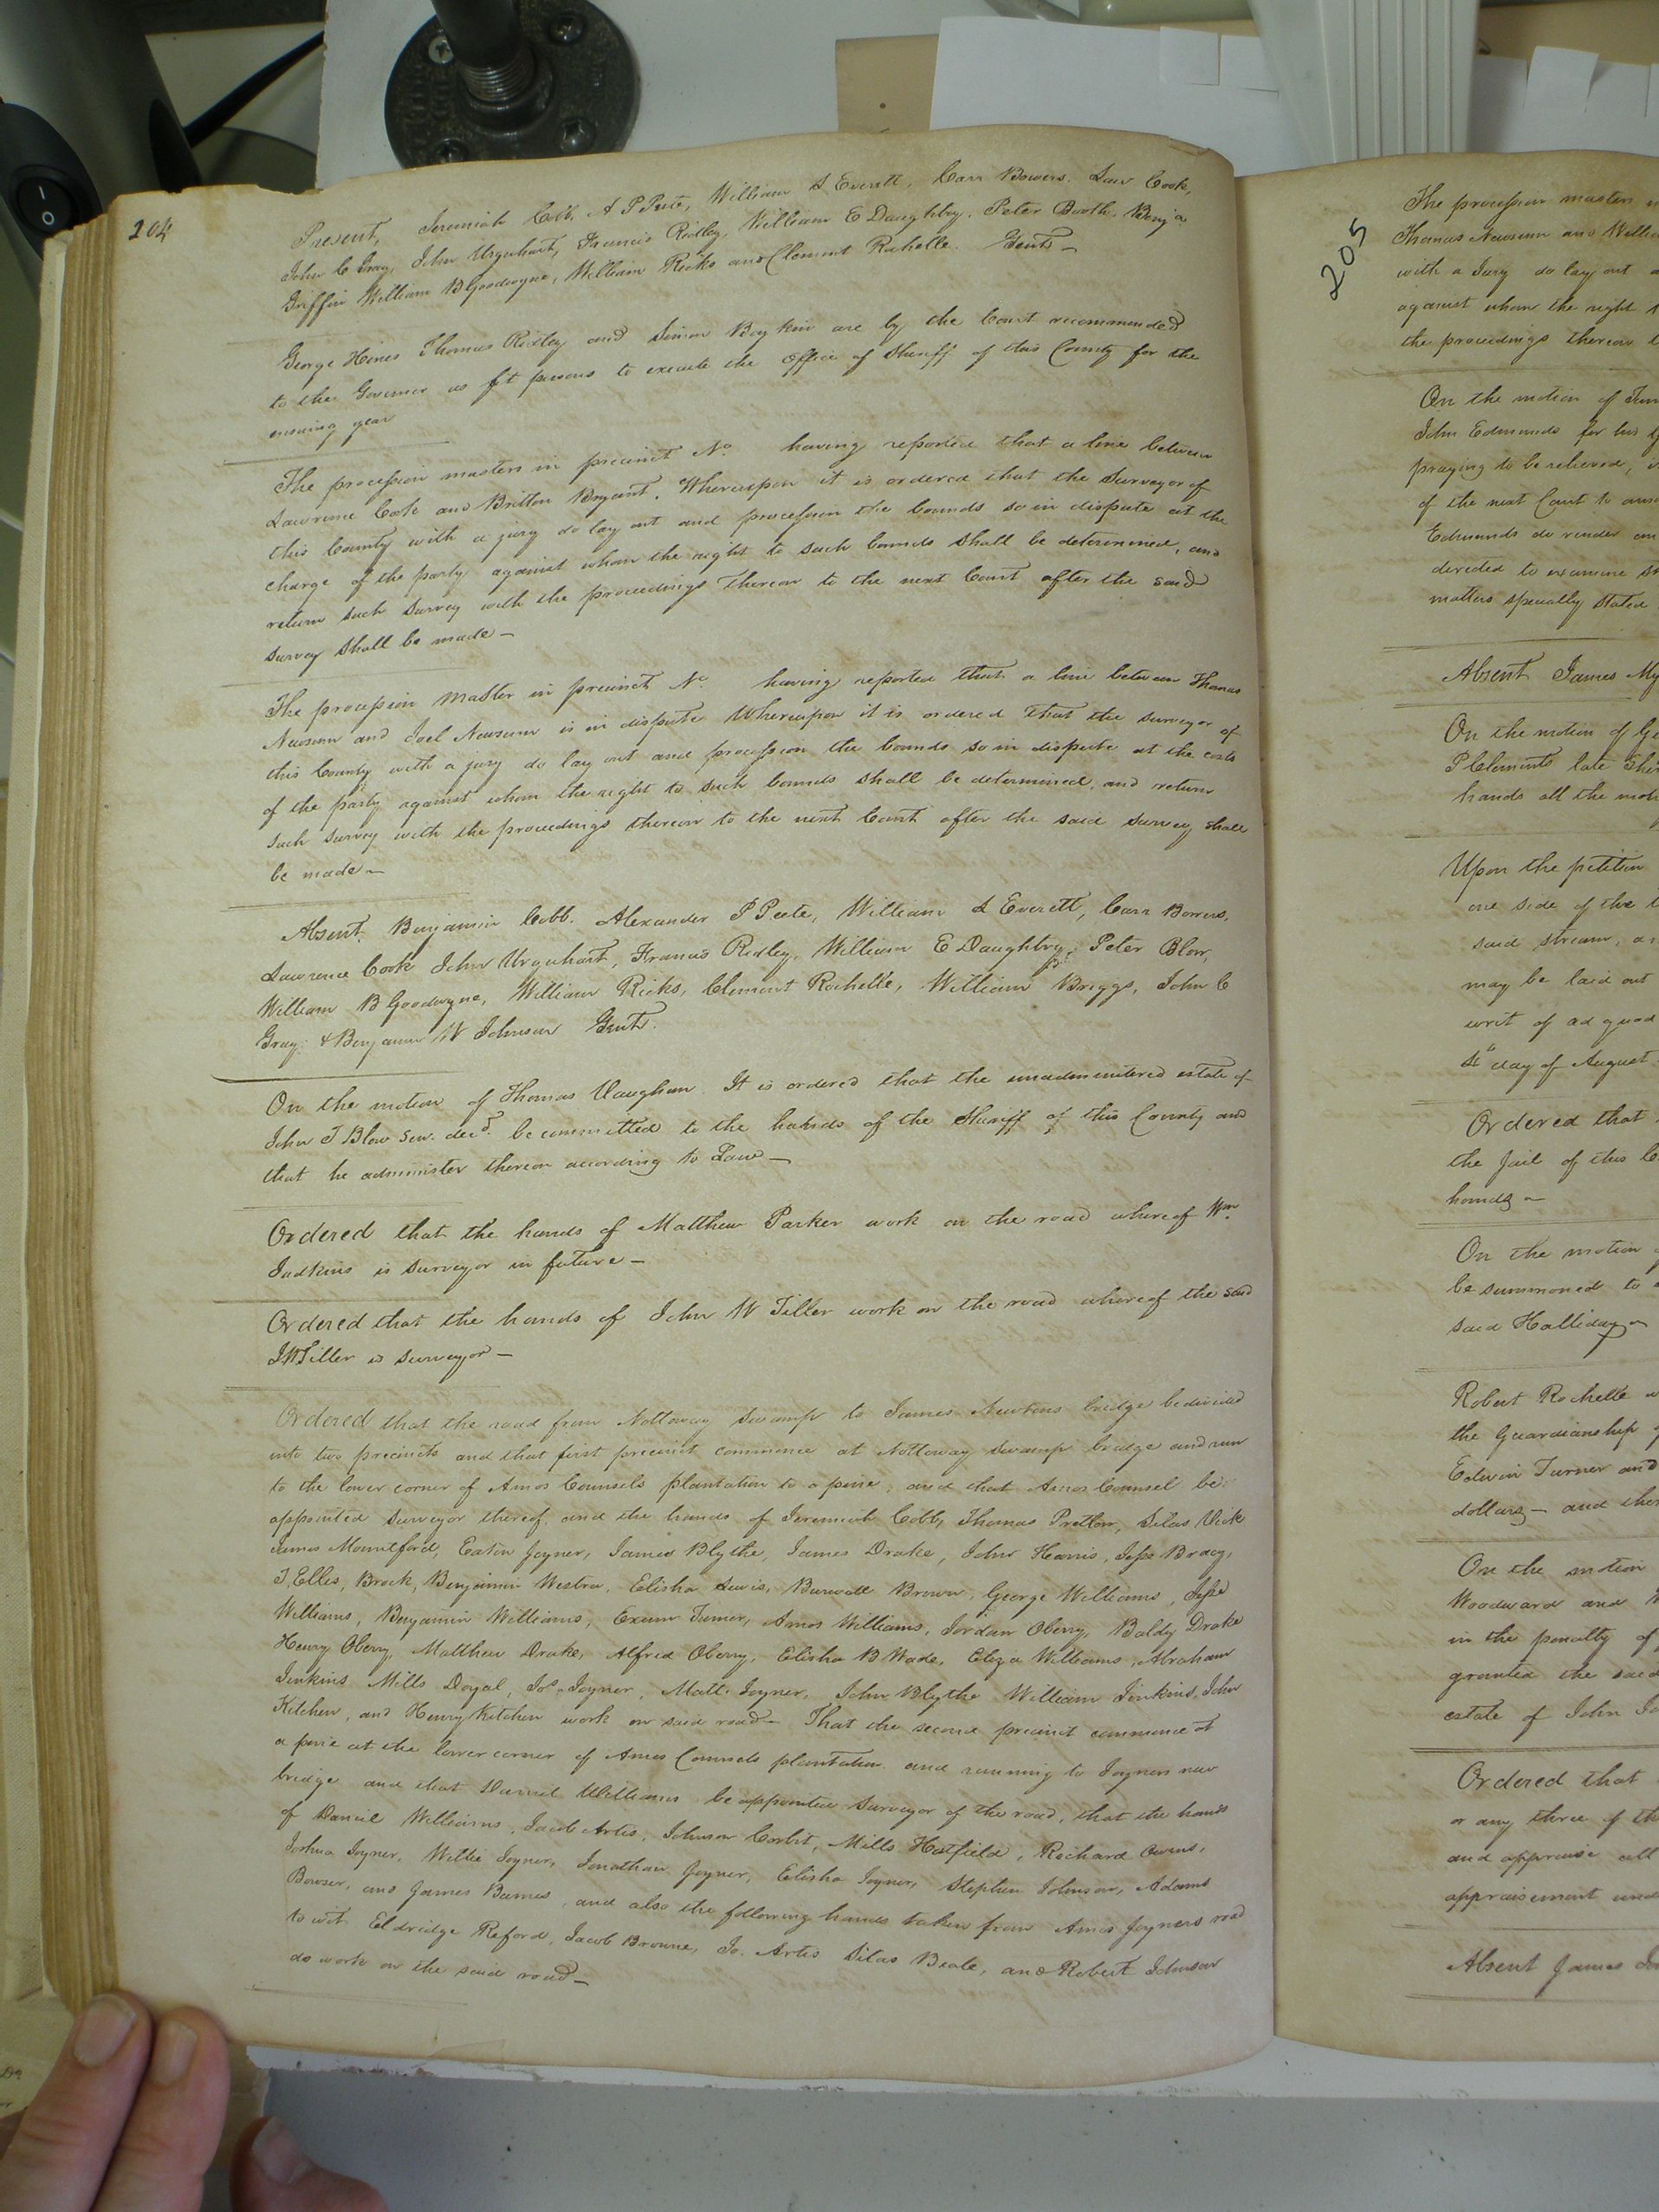 204
Present, Jeremiah Cobb, A P Peete, William S Everett, Carr Bowers, Law Cook,
John C Gray, John Urquhart, Francis Ridley, William E Daughtry, Peter Booth, Benja
Griffin William B Goodwyne, William Ricks and Clement Rochelle. Gents —
George Hines Thomas Ridley and Simon Boykin are by the Court recommended
to the Governor as fit persons to execute the office of Sheriff of this County for the
ensuing year
The procession masters in precinct No having reported that a line between
Lawrence Cook and Britton Bryant. Whereupon it is ordered that the Surveyor of
this County with a jury do lay out and procession the bounds so in dispute at the
charge of the party against whom the right to such bounds shall be determined, and
return such survey with the proceedings thereon to the next Court after the said
survey shall be made —
The procession master in precinct No having reported that a line between Thomas
Newsum and Joel Newsum is in dispute Whereupon it is ordered that the surveyor of
this County with a jury do lay out and procession the bounds so in dispute at the costs
of the party against whom the right to such bounds shall be determined, and return
such survey with the proceedings thereon to the next Court after the said survey shall
be made —
Absent. Benjamin Cobb. Alexander P Peete, William S Everett, Carr Bowers,
Lawrence Cook John Urquhart, Francis Ridley, William E Daughtry, Peter Blow,
William B Goodwyne, William Ricks, Clement Rochelle, William Briggs, John C
Gray & Benjamin W Johnson Gents.
On the motion of Thomas Vaughan. It is ordered that the unadministered estate of
John T Blow Sen. decd. be committed to the hands of the Sheriff of this County and
that he administer thereon according to Law —
Ordered that the hands of Matthew Parker work on the road whereof Wm
Judkins is surveyor in future —
Ordered that the hands of John W Tiller work on the road whereof the said
J W Tiller is surveyor —
Ordered that the road from Nottoway Swamp to James Newtons bridge be divided
into two precincts and that first precinct commence at Nottoway Swamp bridge and run
to the lower corner of Amos Counsels plantation to a pine, and that Amos Counsel be
appointed surveyor thereof and the hands of Jeremiah Cobb, Thomas Pretlow, Silas Vick
James Mountford, Eaton Joyner, James Blythe, James Drake, John Harris, Jesse Bracy,
J. Elles, Brock, Benjamin Westra, Elisha Lewis, Burwell Brown, George Williams, Jesse
Williams, Benjamin Williams, Exum Turner, Amos Williams, Jordan Oberry, Baldy Drake
Henry Oberry, Matthew Drake, Alfred Oberry, Elisha B Wade, Eliza Williams, Abraham
Jenkins Mills Doyal, Jos. Joyner, Matt. Joyner, John Blythe William Jenkins, John
Kitchen, and Henry Kitchen work on said road — That the second precinct commence at
a pine at the lower corner of Amos Counsels plantation and running to Joyners new
bridge and that Daniel Williams be appointed Surveyor of the road, that the hands
of Daniel Williams, Jacob Artis, Johnson Corbit, Mills Hatfield, Richard Owens,
Joshua Joyner, Willie Joyner, Jonathan Joyner, Elisha Joyner, Stephen Johnson, Adams
Bowser, and James Barnes, and also the following hands taken from Amos Joyners road
to wit. Eldridge Reford, Jacob Browne, Jo. Artis Silas Beale, and Robert Johnson
do work on the said road —
205
The procession masters
Thomas Newsum and Willia
with a Jury do lay out
against whom the right
the proceedings thereon
On the motion of
John Edmunds for his
praying to be relieved,
of the next Court to
Edmunds do render
directed to examine
matters specially stated
Absent James
On the motion of
P Clements late
hands all the
Upon the petition
one side of the
said stream,
may be laid out
writ of ad quod
day of August
Ordered that
the Jail of this
hands —
On the motion
be summoned to
said Halliday —
Robert Rochelle
the Guardianship
Edwin Turner and
dollars — and
On the motion
Woodward and
in the penalty of
granted the said
estate of John
Ordered that
or any three of
and appraise all
appraisement
Absent James